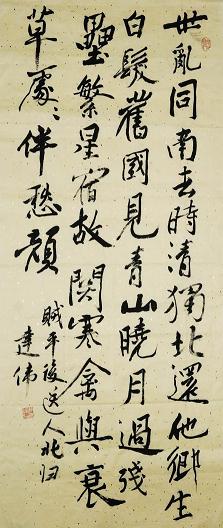 世亂同南去時清獨北還他鄉生
白髮舊國見青山曉月過殘
壘繁星宿故關寒禽與衰
草處〻伴愁顏
賊平後送人北归
達偉